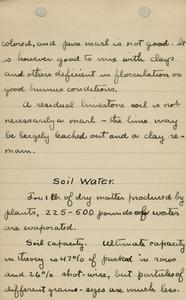 colored, and pure marl is not good. It
is however good to mix with clays
and others deficient in flocculation or
good humus conditions.
A residual limestone soil is not
necessarily a marl - the lime may
be largely leached out and a clay re-
main.
Soil Water.
For 1 lb of dry matter produced by
plants, 225-500 pounds of water
are evaporated.
Soil capacity. Ultimate capacity
in theory is 47% if packed in rows
and 26% shot-wise, but particles of
different grains - sizes are much less.